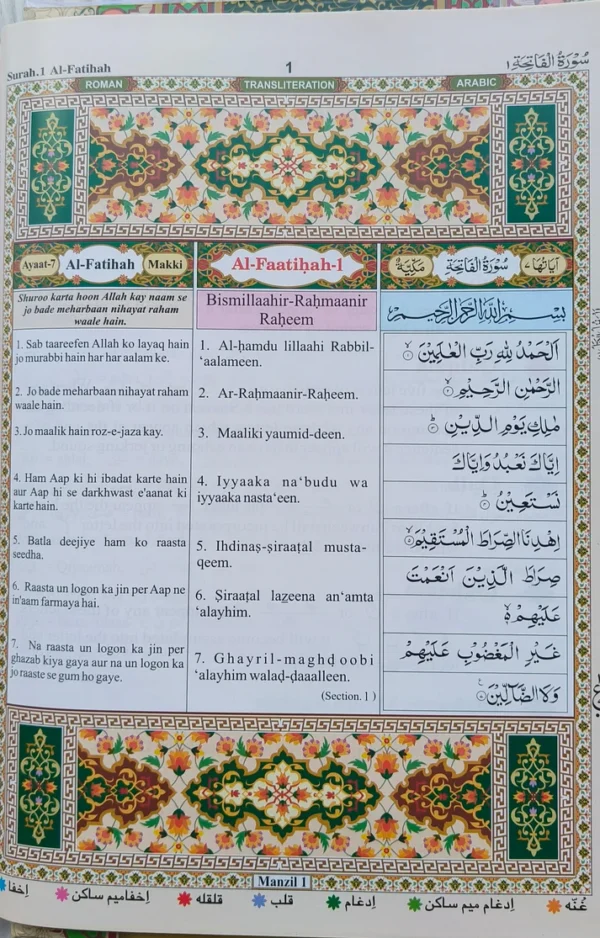 Surah.1 Al-Fatihah
1
سُورَةُ الْفَاتِحَة ١
ROMAN
TRANSLITERATION
ARABIC
Ayaat-7
Al-Fatihah
Makki
Al-Faatiḥah-1
مَكِّيَّةٌ
سُورَةُ الْفَاتِحَةِ
اٰيَاتُهَا ٧
Shuroo karta hoon Allah kay naam se
jo bade meharbaan nihayat raham
waale hain.
1. Sab taareefen Allah ko layaq hain
jo murabbi hain har har aalam ke.
2. Jo bade meharbaan nihayat raham
waale hain.
3. Jo maalik hain roz-e-jaza kay.
4. Ham Aap ki hi ibadat karte hain
aur Aap hi se darkhwast e'aanat ki
karte hain.
5. Batla deejiye ham ko raasta
seedha.
6. Raasta un logon ka jin per Aap ne
in'aam farmaya hai.
7. Na raasta un logon ka jin per
ghazab kiya gaya aur na un logon ka
jo raaste se gum ho gaye.
Bismillaahir-Raḥmaanir
Raḥeem
1. Al-ḥamdu lillaahi Rabbil-
‘aalameen.
2. Ar-Raḥmaanir-Raḥeem.
3. Maaliki yaumid-deen.
4. Iyyaaka na‘budu wa
iyyaaka nasta‘een.
5. Ihdinaṣ-ṣiraaṭal musta-
qeem.
6. Ṣiraaṭal lazeena an‘amta
‘alayhim.
7. Ghayril-maghḍoobi
‘alayhim walaḍ-ḍaaalleen.
(Section. 1 )
بِسْمِ اللهِ الرَّحْمٰنِ الرَّحِيْمِ
اَلْحَمْدُ لِلّٰهِ رَبِّ الْعٰلَمِيْنَ ۙ‏ ١
الرَّحْمٰنِ الرَّحِيْمِ ۙ‏ ٢
مٰلِكِ يَوْمِ الدِّيْنِ ؕ‏ ٣
اِيَّاكَ نَعْبُدُ وَاِيَّاكَ
نَسْتَعِيْنُ ؕ‏ ٤
اِهْدِنَا الصِّرَاطَ الْمُسْتَقِيْمَ ۙ‏ ٥
صِرَاطَ الَّذِيْنَ اَنْعَمْتَ
عَلَيْهِمْ ۙ ٦
غَيْرِ الْمَغْضُوْبِ عَلَيْهِمْ
وَلَا الضَّآلِّيْنَ ٧
Manzil 1
غُنّه
اِدغام میم ساکن
اِدغام
قلب
قلقله
اِخفامیم ساکن
اِخفا